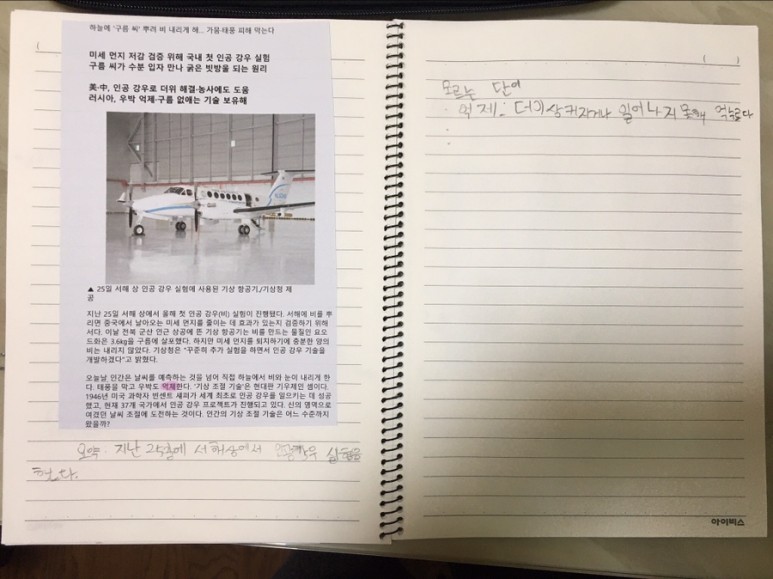 하늘에 '구름 씨' 뿌려 비 내리게 해… 가뭄·태풍 피해 막는다
미세 먼지 저감 검증 위해 국내 첫 인공 강우 실험
구름 씨가 수분 입자 만나 굵은 빗방울 되는 원리
英·中, 인공 강우로 더위 해결·농사에도 도움
러시아, 우박 억제·구름 없애는 기술 보유해
▲ 25일 서해 상 인공 강우 실험에 사용된 기상 항공기/기상청 제
공
지난 25일 서해 상에서 올해 첫 인공 강우(비) 실험이 진행됐다. 서해에 비를 뿌
리면 중국에서 날아오는 미세 먼지를 줄이는 데 효과가 있는지 검증하기 위해
서다. 이날 전북 군산 인근 상공에 뜬 기상 항공기는 비를 만드는 물질인 요오
드화은 3.6kg을 구름에 살포했다. 하지만 미세 먼지를 퇴치하기에 충분한 양의
비는 내리지 않았다. 기상청은 "꾸준히 추가 실험을 하면서 인공 강우 기술을
개발하겠다"고 밝혔다.
오늘날 인간은 날씨를 예측하는 것을 넘어 직접 하늘에서 비와 눈이 내리게 한
다. 태풍을 막고 우박도 억제한다. '기상 조절 기술'은 현대판 기우제인 셈이다.
1946년 미국 과학자 빈센트 섀퍼가 세계 최초로 인공 강우를 일으키는 데 성공
했고, 현재 37개 국가에서 인공 강우 프로젝트가 진행되고 있다. 신의 영역으로
여겼던 날씨 조절에 도전하는 것이다. 인간의 기상 조절 기술은 어느 수준까지
왔을까?
요약: 지난 25일에 서해상에서 인공강우 실험을
했다.
모르는 단어
· 억제: 더이상 커지거나 일어나지 못하게 억누르다
아이비스